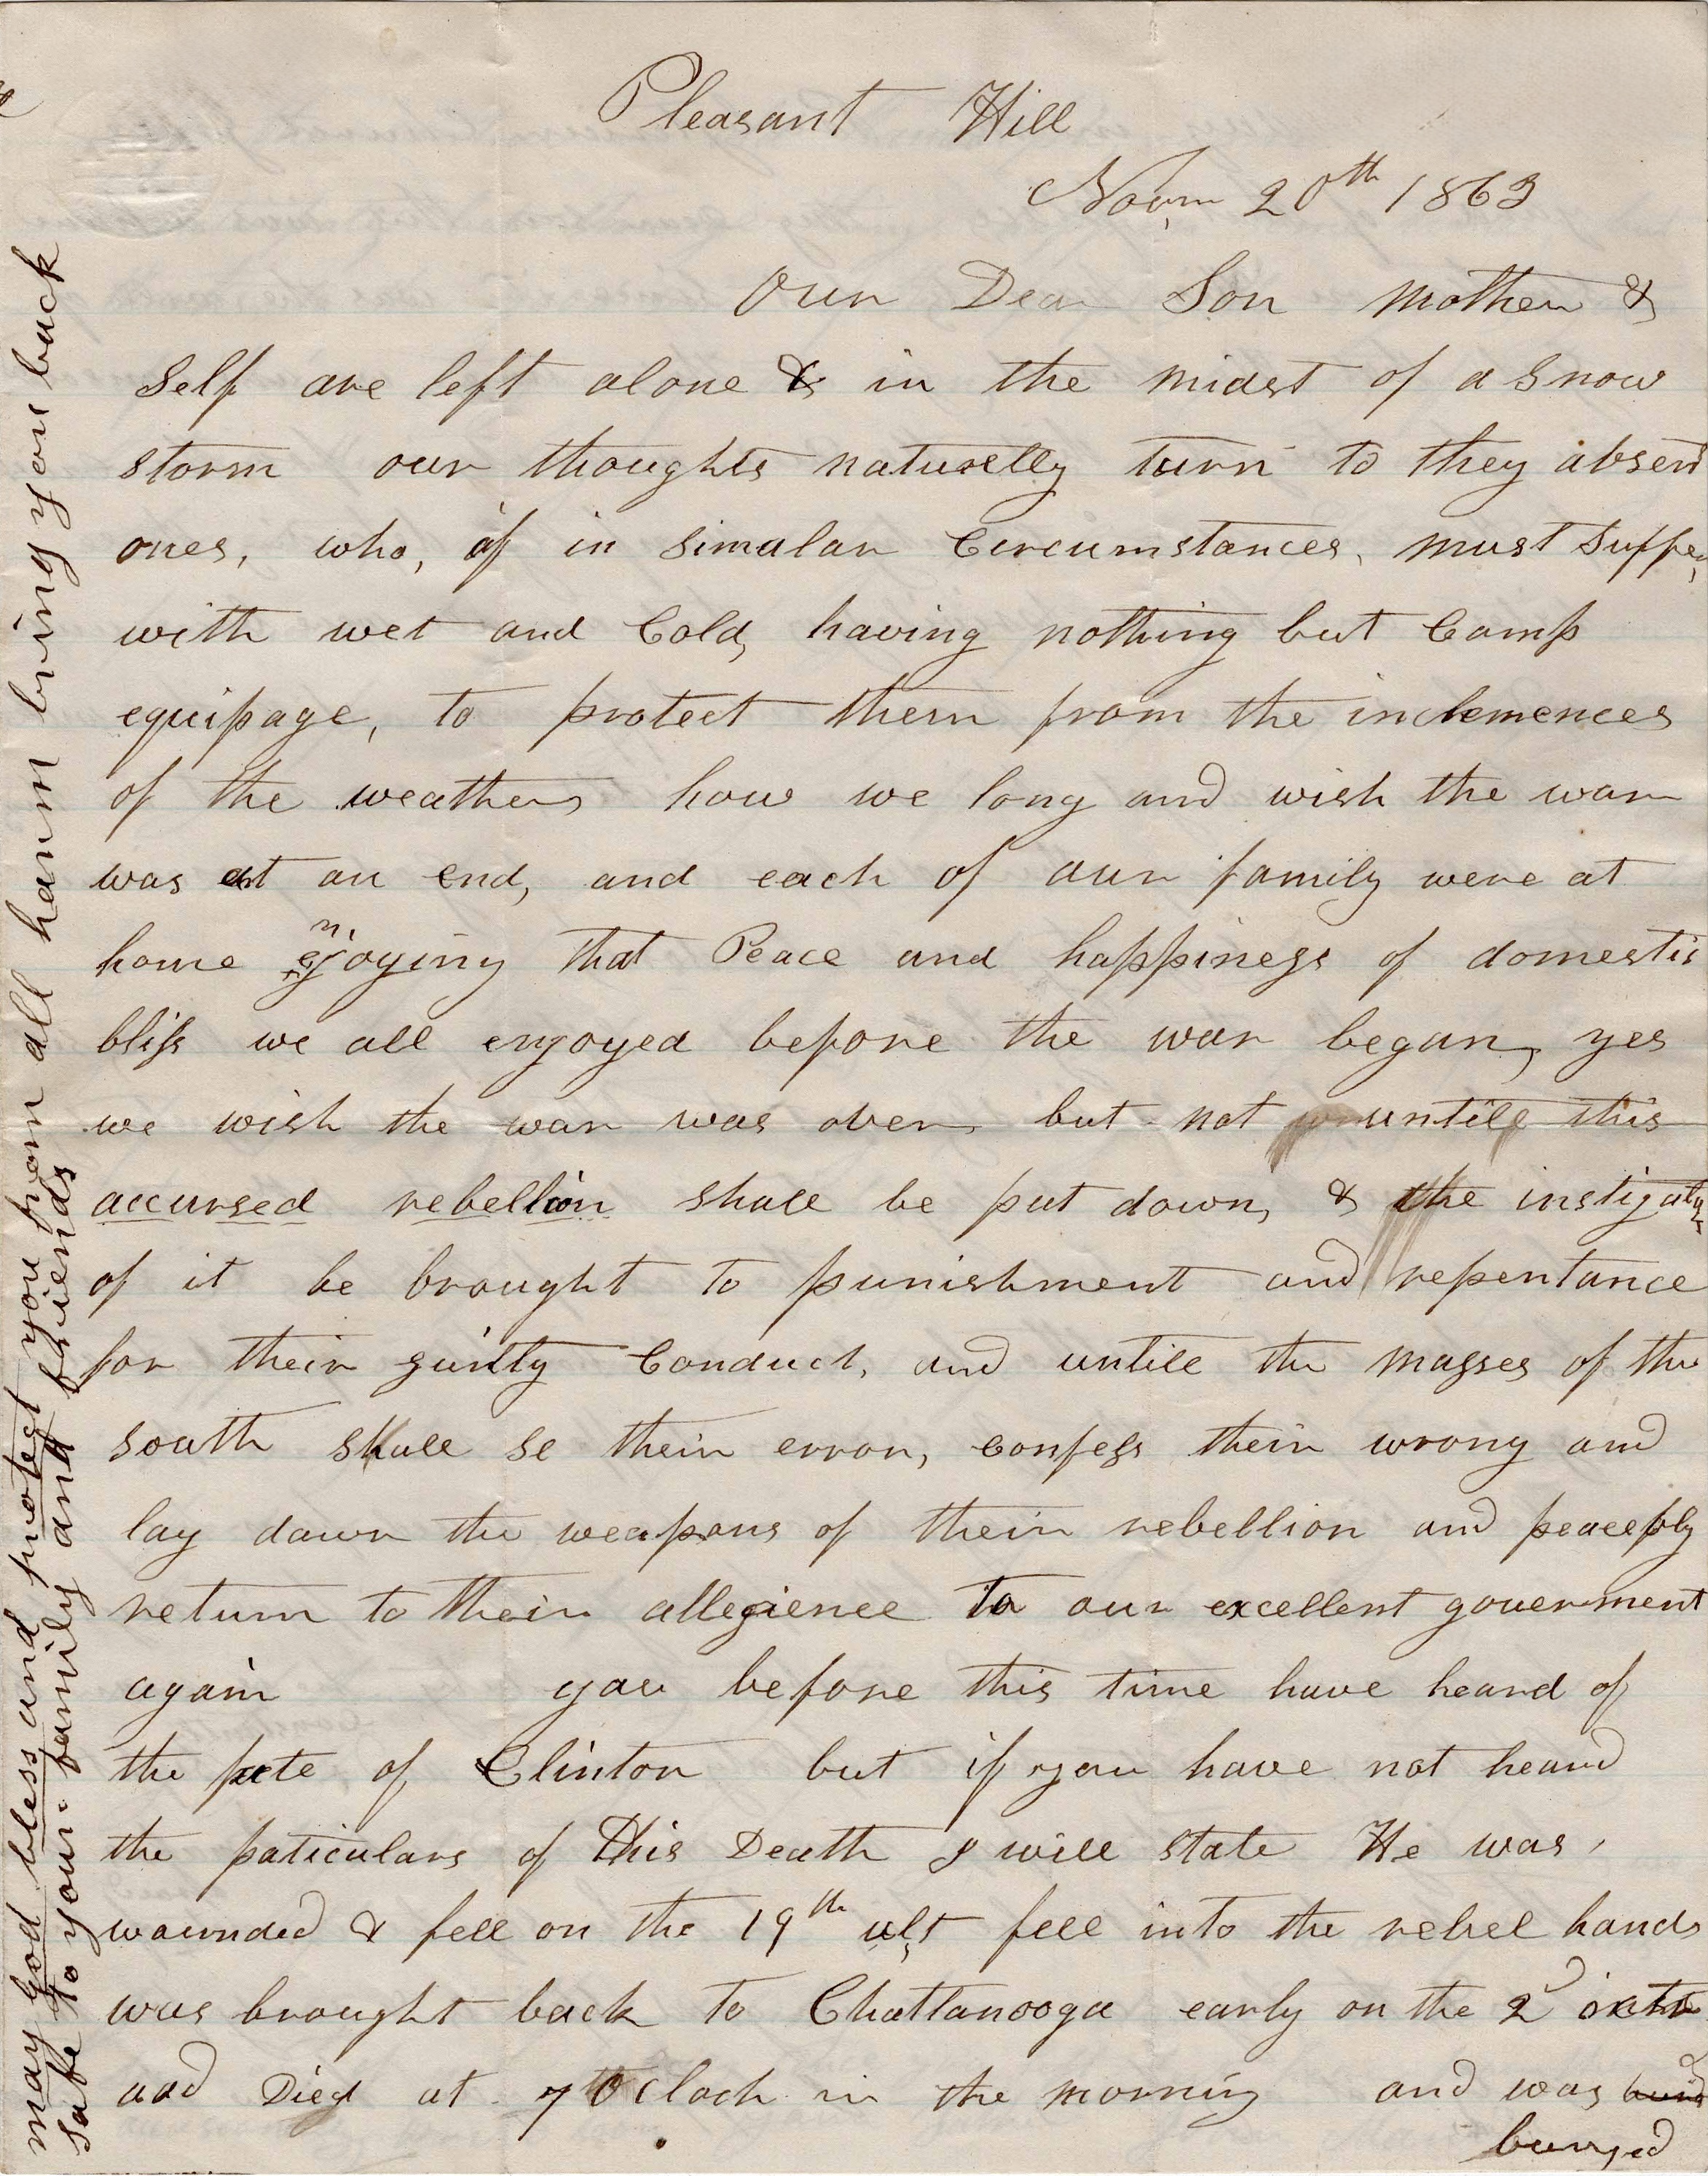 Pleasant Hill
Novm 20th 1863
Our Dear Son Mother &
Self are left alone & in the midst of a Snow
storm our thoughts naturelly turn to they absent
ones, who, if in Simalar Circumstances, must Suffer,
with wet and Cold, having nothing but Camp
equipage, to protect them from the inclemences
of the weather, how we long and wish the war
was at an end, and each of our family were at
home enjoying that Peace and happiness of domestic
bliss we all enjoyed before the war began, yes
we wish the war was over, but not untill this
accursed rebellion shall be put down, & the instigators
of it be brought to punishment and repentance
for their guilty Conduct, and untill the masses of the
south shall se their error, Confess their wrong and
lay down the weapons of their rebellion and peacefly
return to their allegience to our excellent goverment
again you before this time have heard of
the fate of Clinton but if you have not heard
the paticulars of his Death I will state He was
wounded & fell on the 19th ult fell into the rebel hands
was brought back to Chattanooga early on the 2d
and Died at 7 OClock in the morning and was
buryed
may god bless and protect you from all harm bring you back
safe to your family and friends